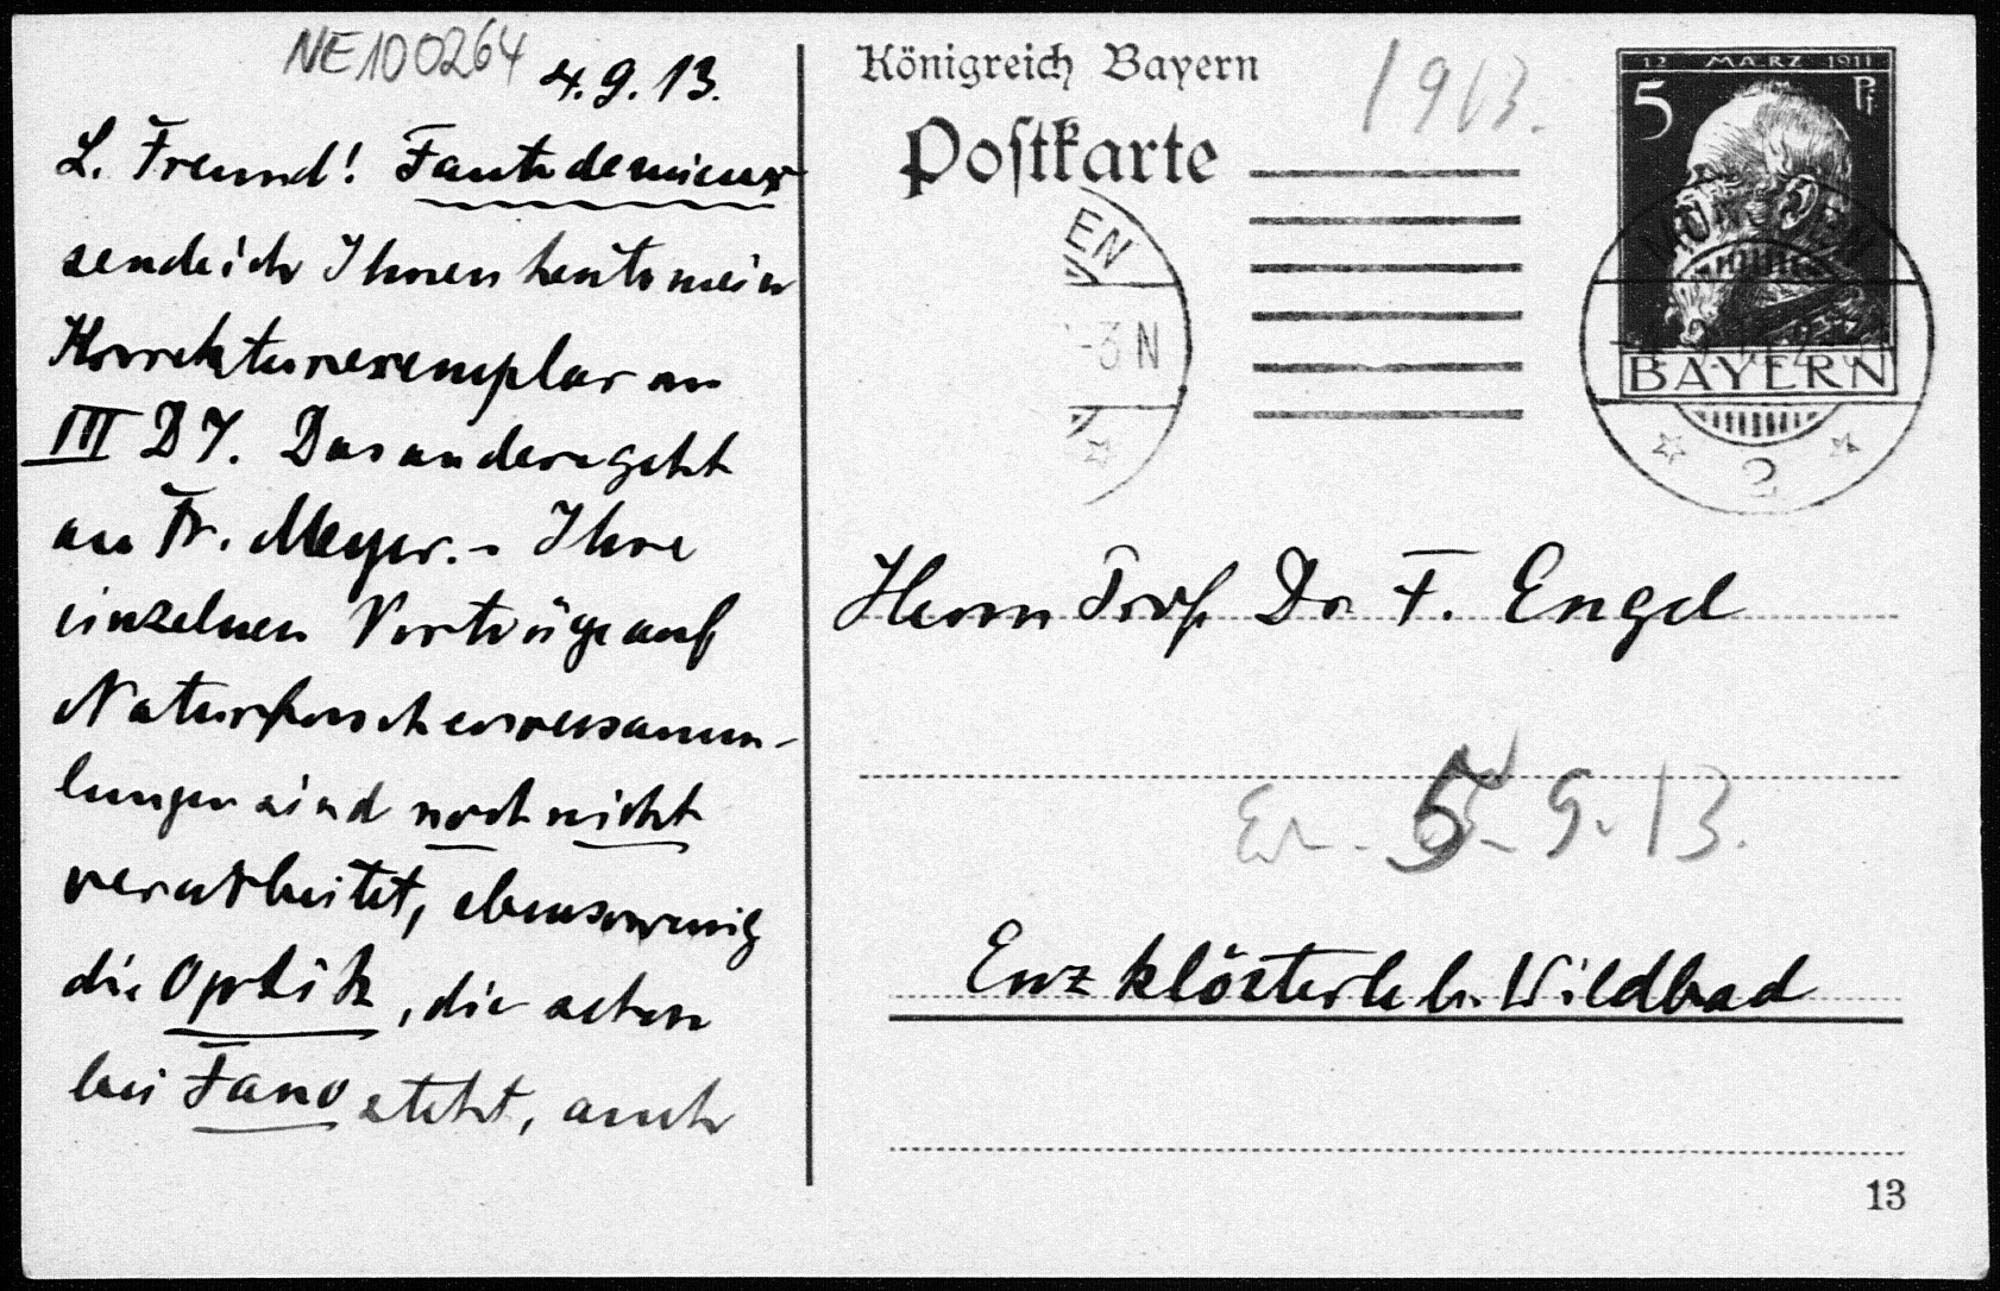 NE100264
4.9.13.
L. Freund! Faute de mieux
sende ich Ihnen heute mein
Korrekturexemplar an
III D 7. Das andere geht
an Fr. Meyer. – Ihre
einzelnen Vorträge auf
Naturforscherversamm-
lungen sind noch nicht
verarbeitet, ebensowenig
die Optik, die schon
bei Fano steht, auch
Königreich Bayern
Postkarte
1913.
12 MÄRZ 1911
5 Pf
BAYERN
MÜNCHEN
2
EN
-3 N
Herrn Prof Dr F. Engel
Er. 5. 9. 13.
Enzklösterle b. Wildbad
13